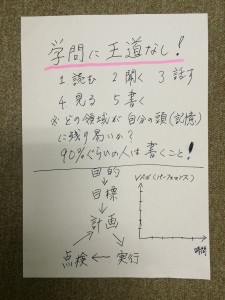 学問に王道なし!
1 読む 2 聞く 3 話す
4 見る 5 書く
※どの領域が自分の頭(記憶)
に残り高いか?
90%ぐらいの人は書くこと!
目的
↓
目標
↓
計画
点検 ← 実行
(パーフォマンス)
時間